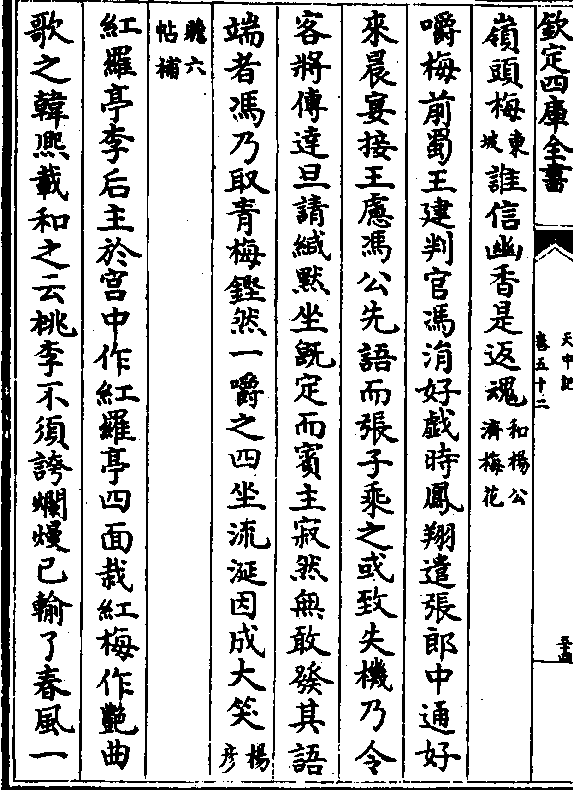 欽定四庫全書
天中記
卷五十二
嶺頭梅東坡誰信幽香是返魂和楊公濟梅花
嚼梅前蜀王建判官馮涓好戲時鳳翔遣張郎中通好
來晨宴接王慮馮公先語而張子乘之或致失機乃令
客將傳達旦請緘默坐旣定而賓主寂然無敢發其語
端者馮乃取青梅鏗然一嚼之四坐流涎因成大笑楊彦
六
帖補
紅羅亭李后主於宮中作紅羅亭四面栽紅梅作艷曲
歌之韓熙載和之云桃李不須誇爛熳已輸了春風一